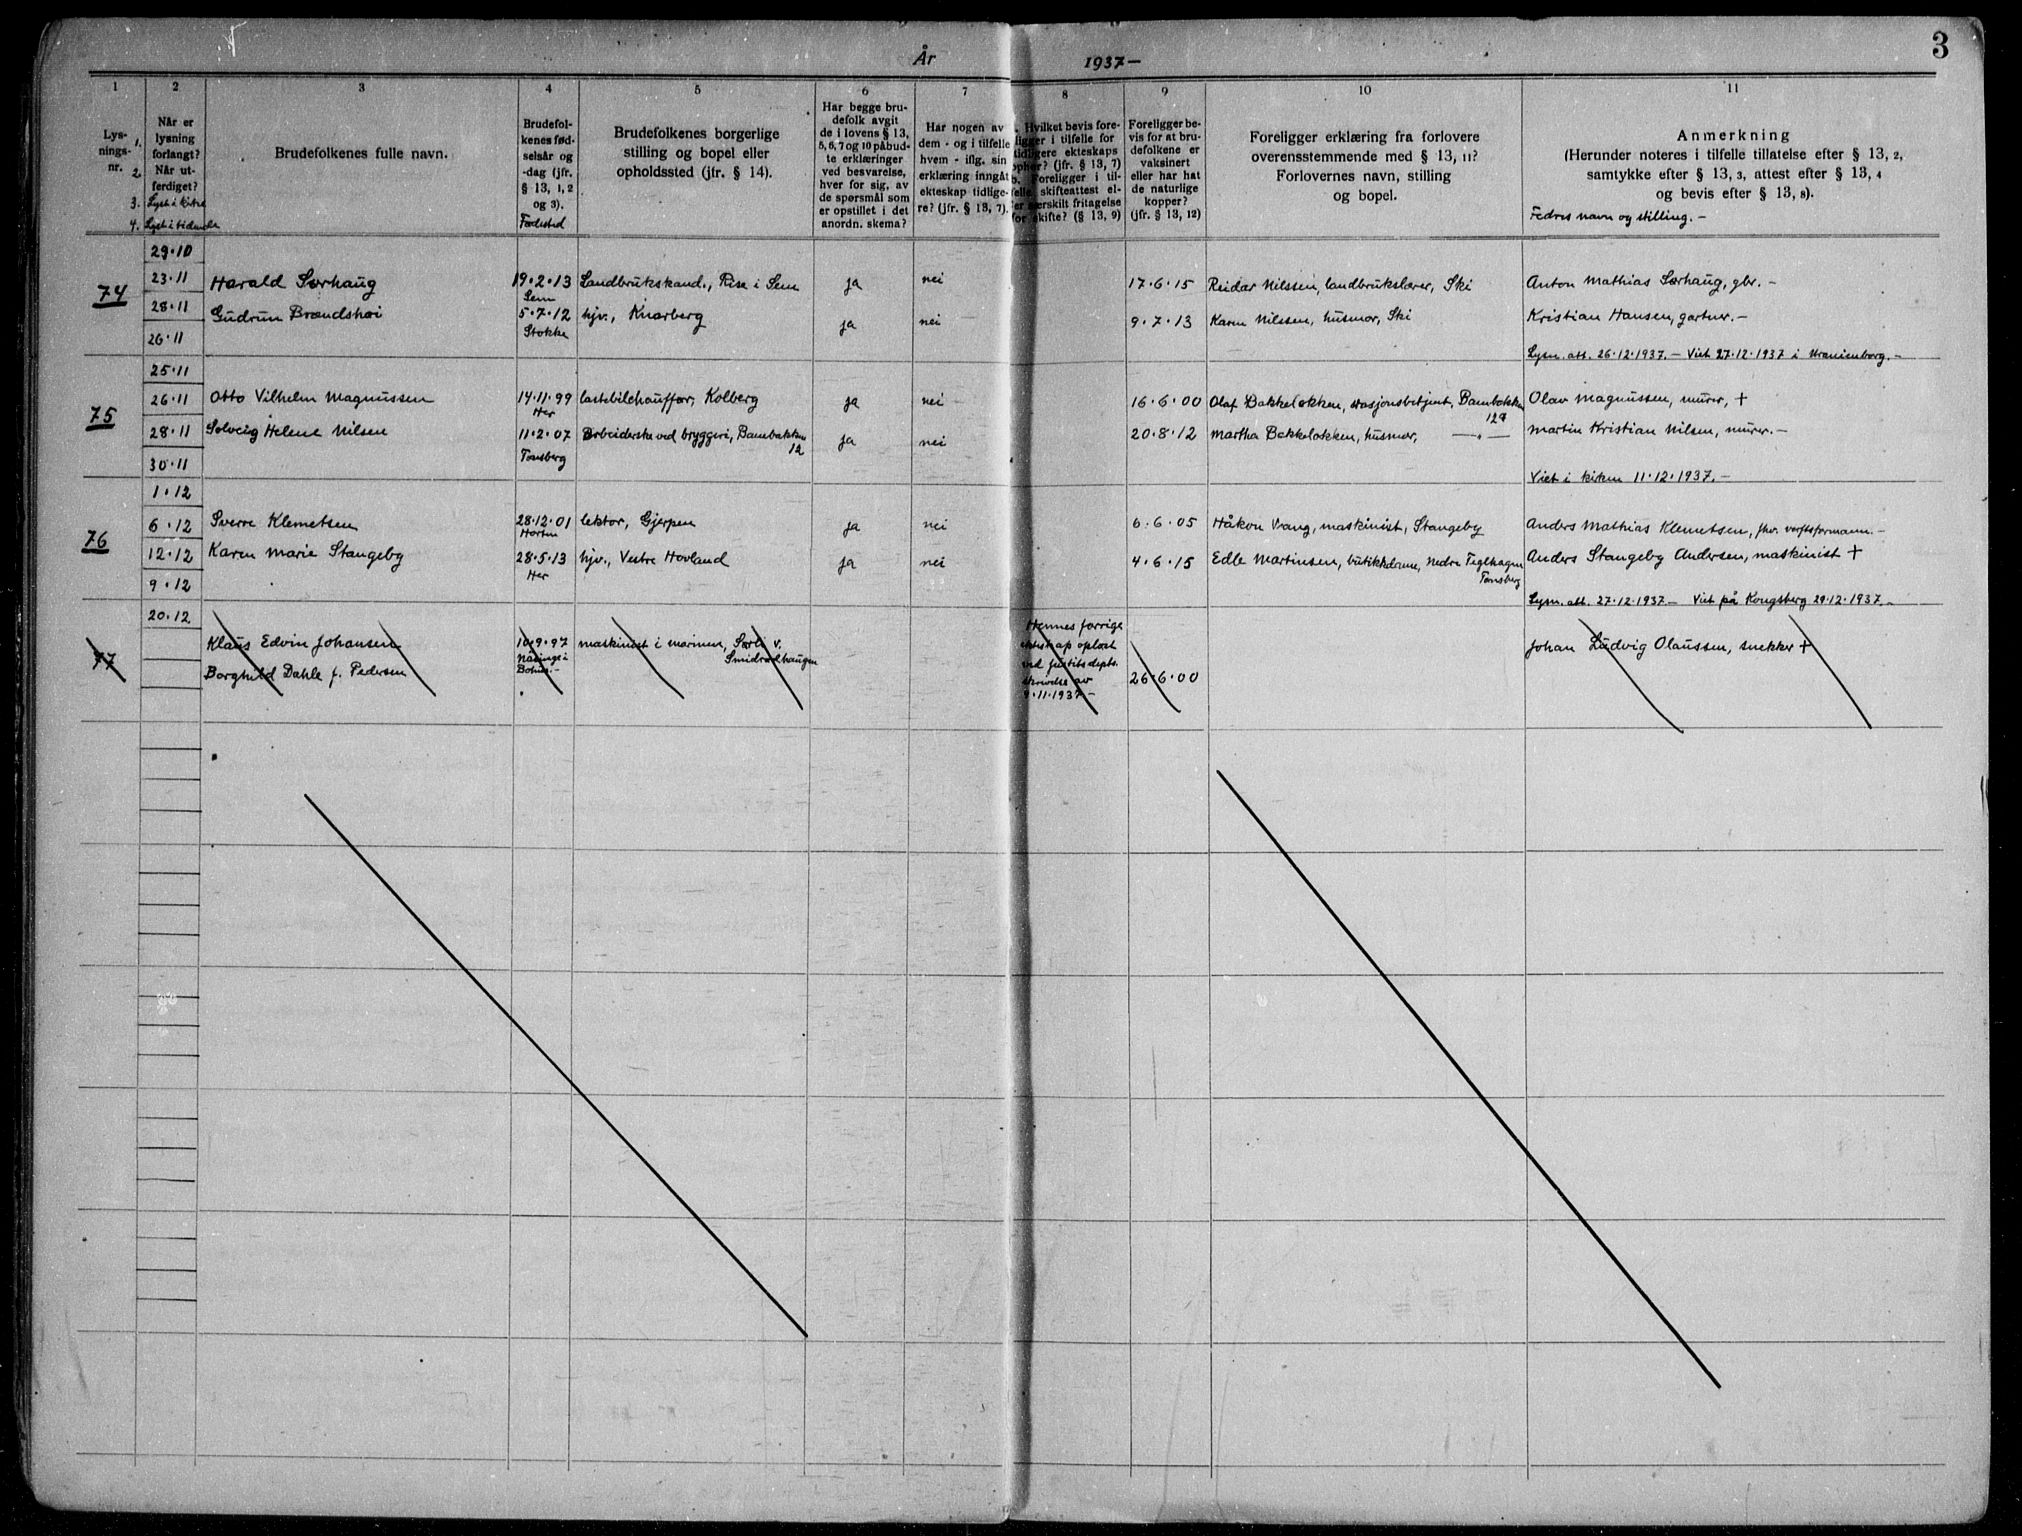 År 1937—
3
1 2 3 4 5 6 7 8 9 10 11
Lys-
nings-
nr.
1.
2.
3.
4.
Når er
lysning
forlangt?
Når ut-
ferdiget?
Lyst i kirke
Lyst i tidende
Brudefolkenes fulle navn.
Brudefol-
kenes fød-
selsår og
-dag (jfr.
§ 13, 1, 2
og 3).
Fødested
Brudefolkenes borgerlige
stilling og bopel eller
opholdssted (jfr. § 14).
Har begge bru-
defolk avgit
de i lovens § 13,
5, 6, 7 og 10 påbud-
te erklæringer
ved besvarelse,
hver for sig, av
de spørsmål som
er opstillet i det
anordn. skema?
Har nogen av
dem - og i tilfelle
hvem - iflg. sin
erklæring inngått
ekteskap tidlige-
re? (jfr. § 13, 7).
Hvilket bevis fore-
ligger i tilfelle for
tidligere ekteskaps
ophør? (jfr. § 13, 7)
b. Foreligger i til-
felle skifteattest el-
ler særskilt fritagelse
for skifte? (§ 13, 9)
Foreligger be-
vis for at bru-
defolkene er
vaksinert
eller har hat
de naturlige
kopper?
(jfr. § 13, 12)
Foreligger erklæring fra forlovere
overensstemmende med § 13, 11?
Forlovernes navn, stilling
og bopel.
Anmerkning
(Herunder noteres i tilfelle tillatelse efter § 13, 2,
samtykke efter § 13, 3, attest efter § 13, 4
og bevis efter § 13, 8).
Fedres navn og stilling. —
74
29·10
23·11
28·11
26·11
Harald Sørhaug
Gudrun Brændshøi
19·2·13
Sem
5·7·12
Stokke
Landbrukskand., Rise i Sem
hjv., Knarberg
ja
ja
nei
nei
17·6·15
9·7·13
Reidar Nilssen, landbrukslærer, Ski
Karen Nilssen, husmor, Ski
Anton Mathias Sørhaug, gbr. —
Kristian Hansen, gartner. —
Lysn. att. 26·12·1937. — Viet 27·12·1937 i Uranienborg. —
75
25·11
26·11
28·11
30·11
Otto Vilhelm Magnussen
Solveig Helene Nilsen
14·11·99
Her
11·2·07
Tønsberg
lastebilchauffør, Kolberg
Arbeiderske ved bryggeri, Bambakken
12
ja
ja
nei
nei
16·6·00
20·8·12
Olaf Bakkeløkken, stasjonsbetjent, Bambakken
12ª
Martha Bakkeløkken, husmor, —„—
Olav Magnussen, murer, +
Martin Kristian Nilsen, murer. —
Viet i kirken 11·12·1937. —
76
1·12
6·12
12·12
9·12
Sverre Klemetsen
Karen Marie Stangeby
28·12·01
Horten
28·5·13
Her
lektor, Gjerpen
hjv., Vestre Hovland
ja
ja
nei
nei
6·6·05
4·6·15
Håkon Vrang, maskinist, Stangeby
Edle Martinsen, butikkdame, Nedre Teglhagen
Tønsberg
Anders Mathias Klemetsen, fhv. verftsformann. —
Anders Stangeby Andersen, maskinist +
Lysn. att. 27·12·1937 — Viet på Kongsberg 29·12·1937. —
77
20·12
Klaus Edvin Johansen
Borghild Dahle f. Pedersen
10·9·97
maskinist i marinen, Sørli v.
Smidrødhaugen
Hennes forrige
ekteskap opløst
ved justitsdepts.
skrivelse av
9·11·1937 —
26·6·00
Johan Ludvig Olaussen, snekker +